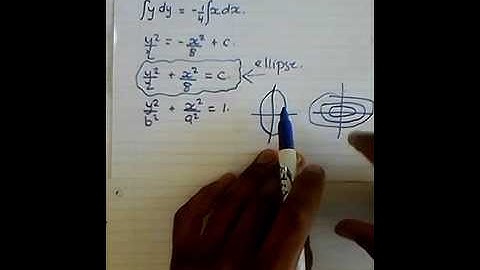 ∫y dy = -1/4∫x dx.
y²/2 = -x²/8 + c.
y²/2 + x²/8 = c. ellipse.
y²/b² + x²/a² = 1.